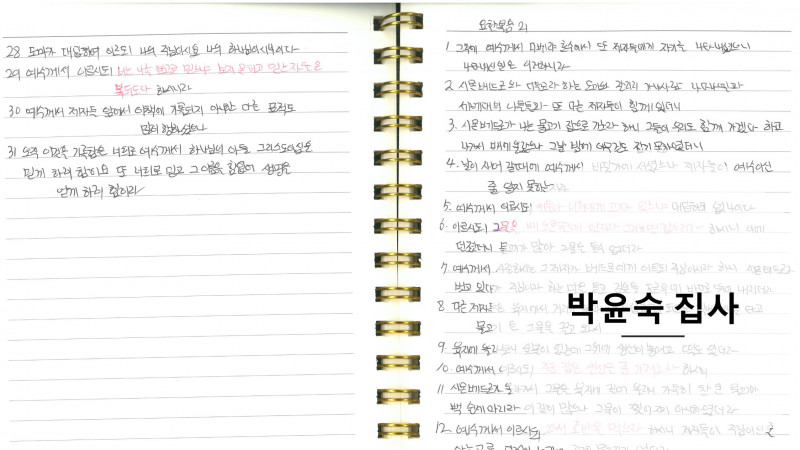 28 도마가 대답하여 이르되 나의 주님이시요 나의 하나님이시니이다
29 예수께서 이르시되 너는 나를 본고로 믿느냐 보지 못하고 믿는 자들은
복되도다 하시니라
30 예수께서 제자들 앞에서 이 책에 기록되지 아니한 다른 표적도
많이 행하셨으나
31 오직 이것을 기록함은 너희로 예수께서 하나님의 아들 그리스도이심을
믿게 하려 함이요 또 너희로 믿고 그 이름을 힘입어 생명을
얻게 하려 함이라
요한복음 21
1. 그후에 예수께서 디베랴 호수에서 또 제자들에게 자기를 나타내셨으니
나타내신 일은 이러하니라
2 시몬 베드로와 디두모라 하는 도마와 갈릴리 가나사람 나다나엘과
세베대의 아들들과 또 다른 제자둘이 함께 있더니
3. 시몬베드로가 나는 물고기 잡으러 가노라 하니 그들이 우리도 함께 가겠다 하고
나가서 배에 올랐으나 그날 밤에 아무것도 잡지 못하였더니
4. 날이 새어 갈때에 예수께서 바닷가에 서셨으나 제자들이 예수이신
줄 알지 못하는지라
5. 예수께서 이르시되 대답하되 없나이다
6. 이르시되 그물을 배 오른편에 던지라 그리하면 하시니 이에
던졌더니 물고기가 많아 그물을 들 수 없더라
7. 예수께서 사랑하시는 그 제자가 베드로에게 이르되 주님이시라 하니 시몬 베드로가
벗고 있다가
8. 다른 제자들은
물고기 든 그물을 끌고 와서
박윤숙 집사
9. 육지에 올라보니
10. 예수께서 이르시되 지금 잡은 생선을 좀 가져오라 하시니
11 시몬베드로가 올라가서 그물을 육지에 끌어 올리니 가득히 찬 큰 물고기가
백 쉰세마리라 이같이 많으나 그물이 찢어지지 아니하였더라
12. 예수께서 이르시되 와서 조반을 먹으라 하시니 제자들이 주님이신